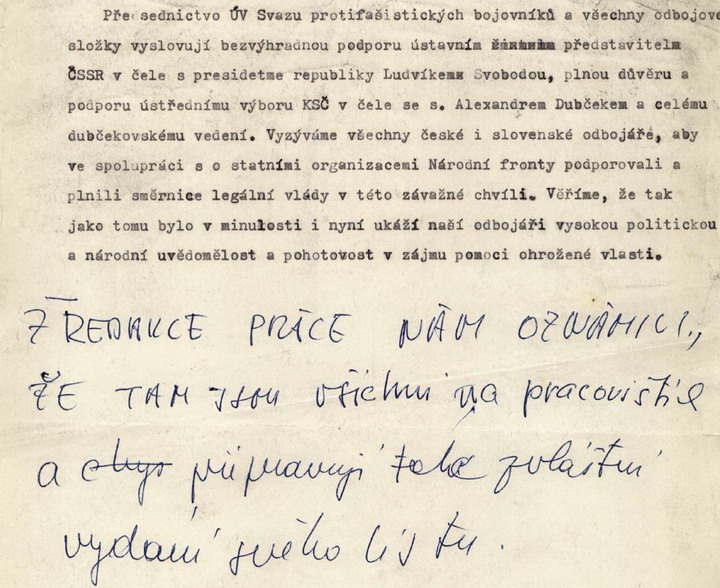 Pře sednictvo ÚV Svazu protifašistických bojovníků a všechny odbojové
složky vyslovují bezvýhradnou podporu ústavním představitelm
ČSSR v čele s presidetme republiky Ludvíkem Svobodou, plnou důvěru a
podporu ústřednímu výboru KSČ v čele se s. Alexandrem Dubčekem a celému
dubčekovskému vedení. Vyzýváme všechny české i slovenské odbojáře, aby
ve spolupráci s o statními organizacemi Národní fronty podporovali a
plnili směrnice legální vlády v této závažné chvíli. Věříme, že tak
jako tomu bylo v minulosti i nyní ukáží naší odbojáři vysokou politickou
a národní uvědomělost a pohotovost v zájmu pomoci ohrožené vlasti.
Z REDAKCE PRÁCE NÁM OZNÁMILI.,
ŽE TAM JSOU všichni na pracovišti
a chys připravují také zvláštní
vydání svého listu.